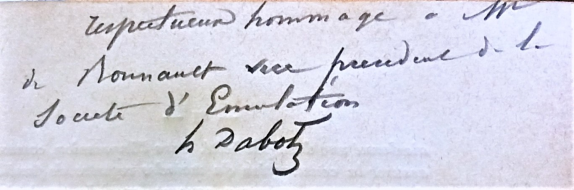 respectueux hommage a Mr
de Bonnault vice president de la
Societé d'Emulation
h Dabot